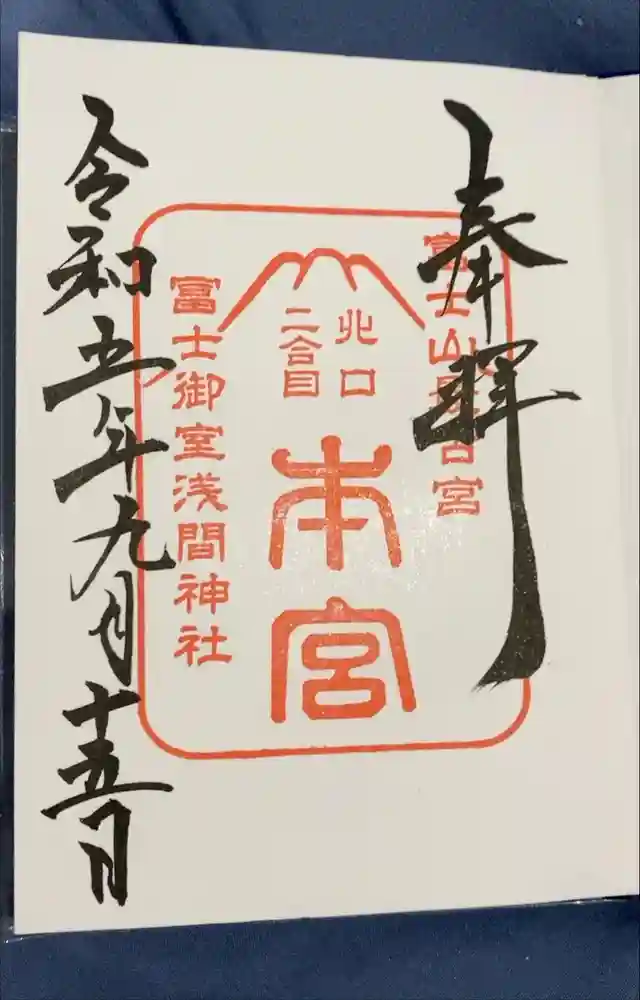 奉拝
富士山最古宮
北口
二合目
本宮
富士御室浅間神社
令和五年九月十五日